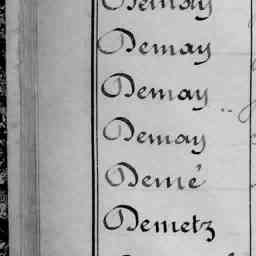 Demay
Demay
Demay
Demay
Demé
Demetz